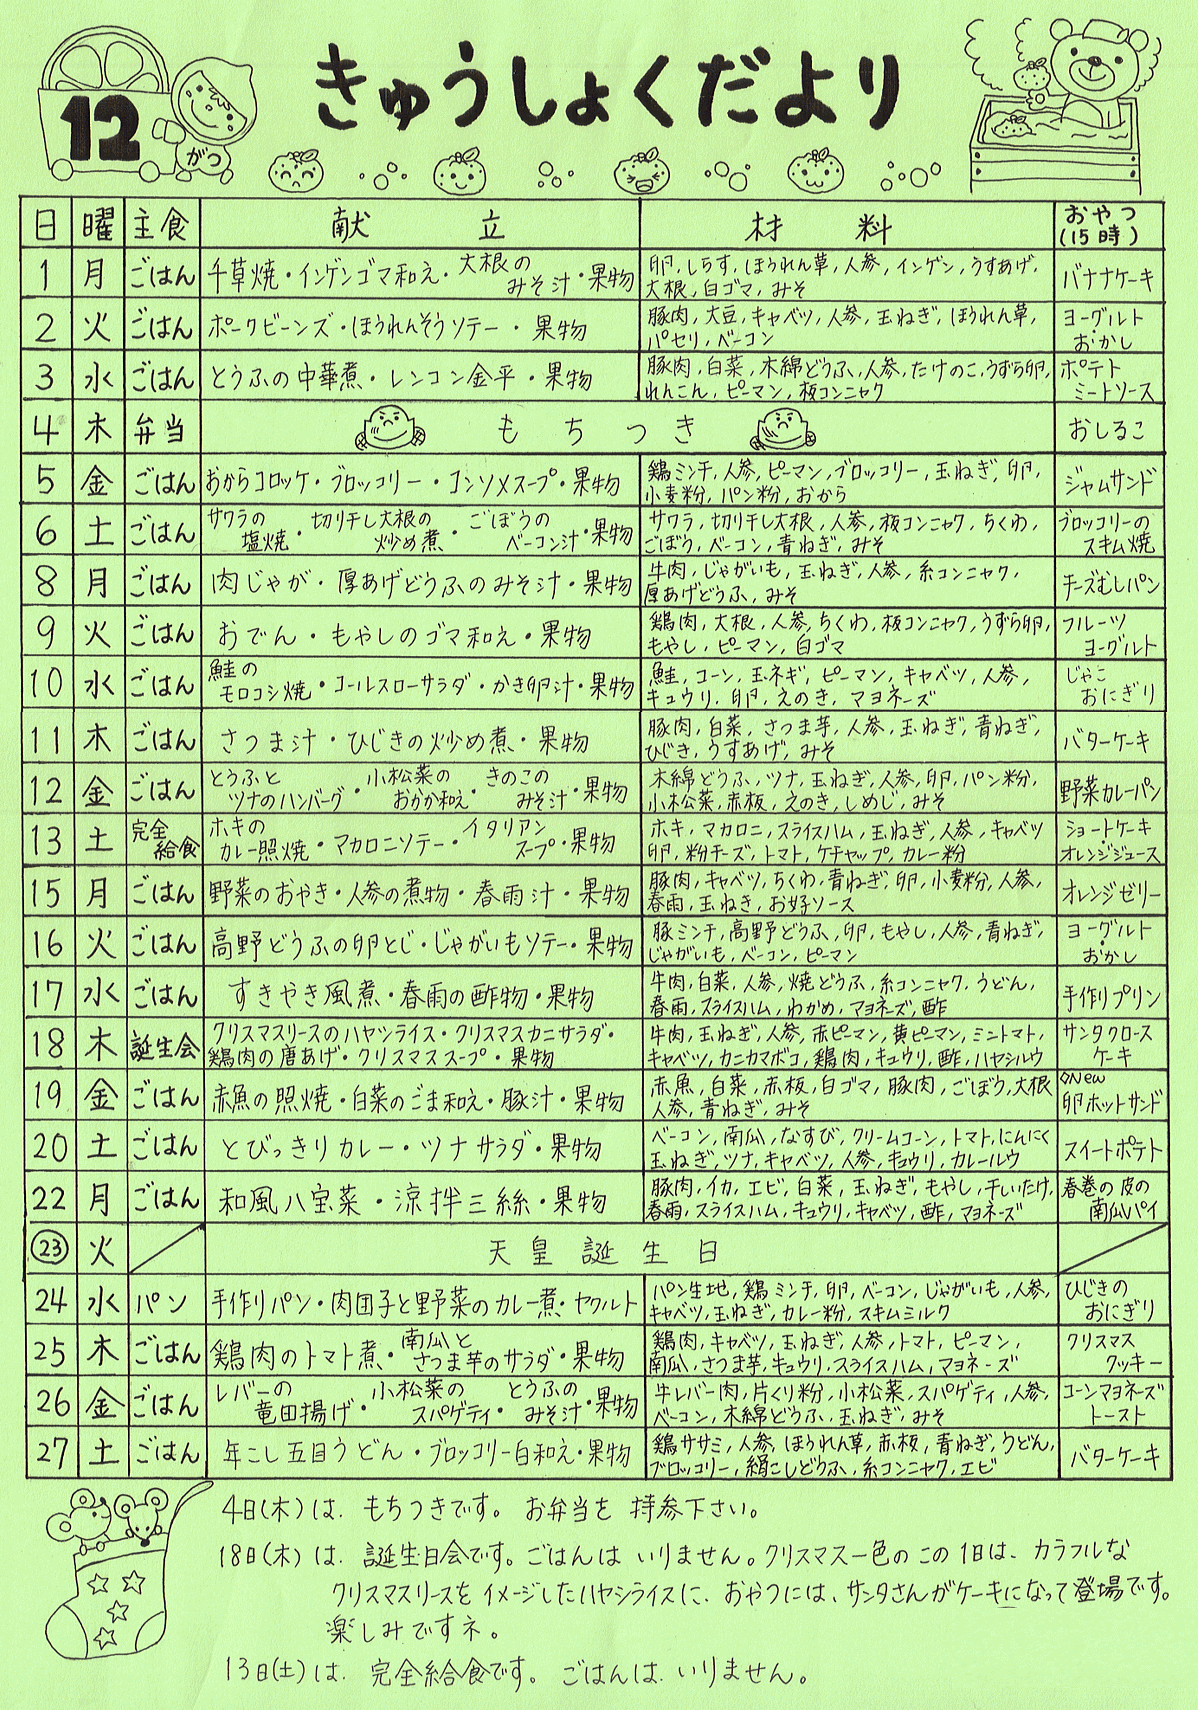 12
がつ
きゅうしょくだより
日 曜 主食 献立 材料 おやつ(15時)
1 月 ごはん 千草焼・インゲンゴマ和え・大根のみそ汁・果物 卵,しらす,ほうれん草,人参,インゲン,うすあげ, バナナケーキ
大根,白ゴマ,みそ
2 火 ごはん ポークビーンズ・ほうれんそうソテー・果物 豚肉,大豆,キャベツ,人参,玉ねぎ,ほうれん草, ヨーグルト・おかし
パセリ,ベーコン
3 水 ごはん とうふの中華煮・レンコン金平・果物 豚肉,白菜,木綿どうふ,人参,たけのこ,うずら卵, ポテトミートソース
れんこん,ピーマン,板コンニャク
4 木 弁当 もちつき おしるこ
5 金 ごはん おからコロッケ・ブロッコリー・コンソメスープ・果物 鶏ミンチ,人参,ピーマン,ブロッコリー,玉ねぎ,卵, ジャムサンド
小麦粉,パン粉,おから
6 土 ごはん サワラの塩焼・切り干し大根の炒め煮・ごぼうのベーコン汁・果物 サワラ,切り干し大根,人参,板コンニャク,ちくわ, ブロッコリーのスキム焼
ごぼう,ベーコン,青ねぎ,みそ
8 月 ごはん 肉じゃが・厚あげどうふのみそ汁・果物 牛肉,じゃがいも,玉ねぎ,人参,糸コンニャク, チーズむしパン
厚あげどうふ,みそ
9 火 ごはん おでん・もやしのゴマ和え・果物 鶏肉,大根,人参,ちくわ,板コンニャク,うずら卵, フルーツヨーグルト
もやし,ピーマン,白ゴマ
10 水 ごはん 鮭のモロコシ焼・コールスローサラダ・かき卵汁・果物 鮭,コーン,玉ネギ,ピーマン,キャベツ,人参, じゃこおにぎり
キュウリ,卵,えのき,マヨネーズ
11 木 ごはん さつま汁・ひじきの炒め煮・果物 豚肉,白菜,さつま芋,人参,玉ねぎ,青ねぎ, バターケーキ
ひじき,うすあげ,みそ
12 金 ごはん とうふとツナのハンバーグ・小松菜のおかか和え・きのこのみそ汁・果物 木綿どうふ,ツナ,玉ねぎ,人参,卵,パン粉, 野菜カレーパン
小松菜,赤板,えのき,しめじ,みそ
13 土 完全給食 ホキのカレー照焼・マカロニソテー・イタリアンスープ・果物 ホキ,マカロニ,スライスハム,玉ねぎ,人参,キャベツ ショートケーキ・オレンジジュース
卵,粉チーズ,トマト,ケチャップ,カレー粉
15 月 ごはん 野菜のおやき・人参の煮物・春雨汁・果物 豚肉,キャベツ,ちくわ,青ねぎ,卵,小麦粉,人参, オレンジゼリー
春雨,玉ねぎ,お好ソース
16 火 ごはん 高野どうふの卵とじ・じゃがいもソテー・果物 豚ミンチ,高野どうふ,卵,もやし,人参,青ねぎ, ヨーグルト・おかし
じゃがいも,ベーコン,ピーマン
17 水 ごはん すきやき風煮・春雨の酢物・果物 牛肉,白菜,人参,焼どうふ,糸コンニャク,うどん, 手作りプリン
春雨,スライスハム,わかめ,マヨネーズ,酢
18 木 誕生会 クリスマスリースのハヤシライス・クリスマスカニサラダ・ 牛肉,玉ねぎ,人参,赤ピーマン,黄ピーマン,ミニトマト, サンタクロースケーキ
鶏肉の唐あげ・クリスマススープ・果物 キャベツ,カニカマボコ,鶏肉,キュウリ,酢,ハヤシルウ
19 金 ごはん 赤魚の照焼・白菜のごま和え・豚汁・果物 赤魚,白菜,赤板,白ゴマ,豚肉,ごぼう,大根 ◇New 卵ホットサンド
人参,青ねぎ,みそ
20 土 ごはん とびっきりカレー・ツナサラダ・果物 ベーコン,南瓜,なすび,クリームコーン,トマト,にんにく スイートポテト
玉ねぎ,ツナ,キャベツ,人参,キュウリ,カレールウ
22 月 ごはん 和風八宝菜・涼拌三絲・果物 豚肉,イカ,エビ,白菜,玉ねぎ,もやし,干しいたけ, 春巻の皮の南瓜パイ
春雨,スライスハム,キュウリ,キャベツ,酢,マヨネーズ
23 火 天皇誕生日
24 水 パン 手作りパン・肉団子と野菜のカレー煮・ヤクルト パン生地,鶏ミンチ,卵,ベーコン,じゃがいも,人参, ひじきのおにぎり
キャベツ,玉ねぎ,カレー粉,スキムミルク
25 木 ごはん 鶏肉のトマト煮・南瓜とさつま芋のサラダ・果物 鶏肉,キャベツ,玉ねぎ,人参,トマト,ピーマン, クリスマスクッキー
南瓜,さつま芋,キュウリ,スライスハム,マヨネーズ
26 金 ごはん レバーの竜田揚げ・小松菜のスパゲティ・とうふのみそ汁・果物 牛レバー肉,片くり粉,小松菜,スパゲティ,人参, コーンマヨネーズトースト
ベーコン,木綿どうふ,玉ねぎ,みそ
27 土 ごはん 年こし五目うどん・ブロッコリー白和え・果物 鶏ササミ,人参,ほうれん草,赤板,青ねぎ,うどん, バターケーキ
ブロッコリー,絹こしどうふ,糸コンニャク,エビ
4日(木)は、もちつきです。お弁当を持参下さい。
18日(木)は、誕生日会です。ごはんはいりません。クリスマス一色のこの1日は、カラフルな
クリスマスリースをイメージしたハヤシライスに、おやつには、サンタさんがケーキになって登場です。
楽しみですネ。
13日(土)は、完全給食です。ごはんは、いりません。